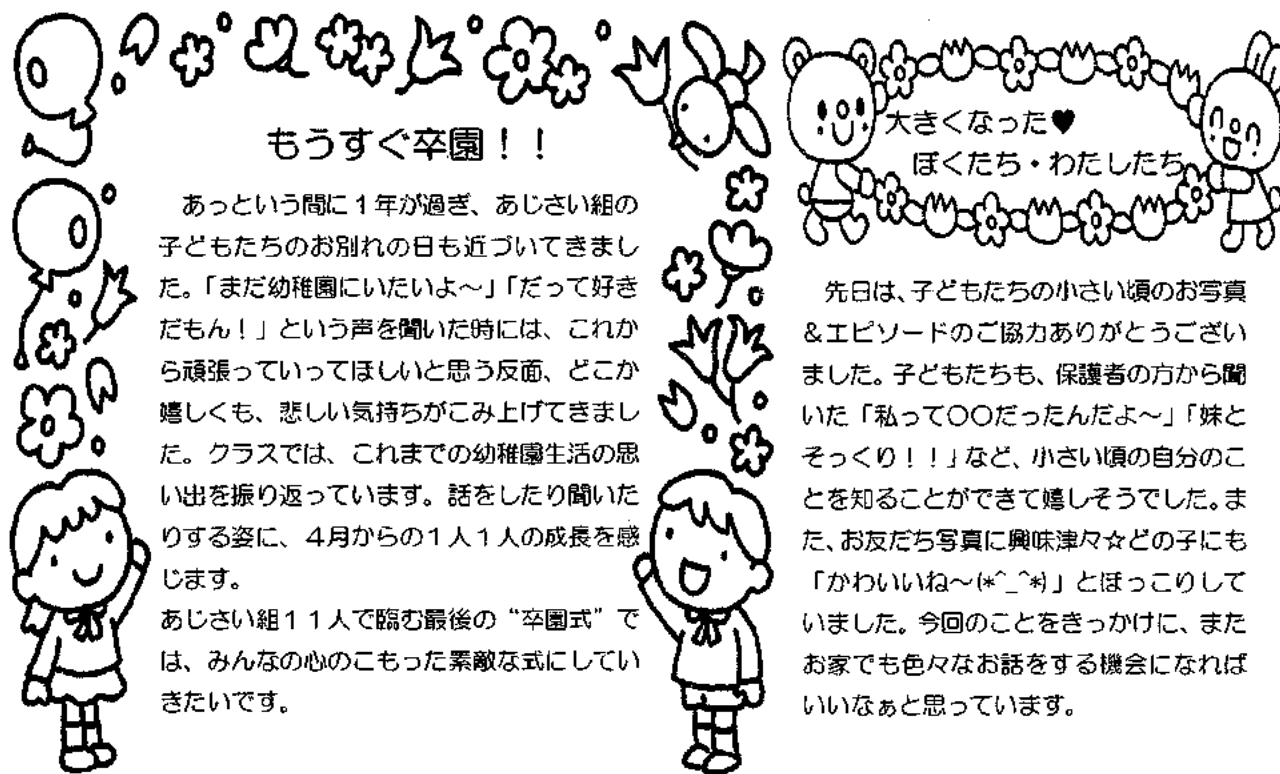 もうすぐ卒園！！
あっという間に１年が過ぎ、あじさい組の
子どもたちのお別れの日も近づいてきまし
た。「まだ幼稚園にいたいよ～」「だって好き
だもん！」という声を聞いた時には、これか
ら頑張っていってほしいと思う反面、どこか
嬉しくも、悲しい気持ちがこみ上げてきまし
た。クラスでは、これまでの幼稚園生活の思
い出を振り返っています。話をしたり聞いた
りする姿に、４月からの１人１人の成長を感
じます。
あじさい組１１人で臨む最後の“卒園式”で
は、みんなの心のこもった素敵な式にしてい
きたいです。
大きくなった♥
ぼくたち・わたしたち
先日は、子どもたちの小さい頃のお写真
＆エピソードのご協力ありがとうござい
ました。子どもたちも、保護者の方から聞
いた「私って〇〇だったんだよ～」「妹と
そっくり！！」など、小さい頃の自分のこ
とを知ることができて嬉しそうでした。ま
た、お友だち写真に興味津々☆どの子にも
「かわいいね～(*^_^*)」とほっこりして
いました。今回のことをきっかけに、また
お家でも色々なお話をする機会になれば
いいなぁと思っています。